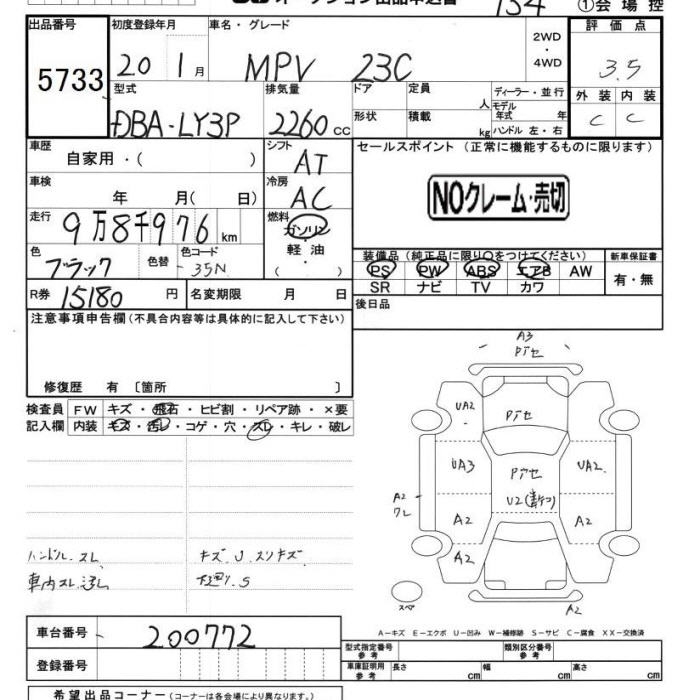 オークション出品申込書 134 ①会場控
出品番号 初度登録年月 車名・グレード 2WD・4WD 評価点
5733 20 1月 MPV 23C 3.5
型式 排気量 ドア 定員 人 ディーラー・並行 外装 内装
DBA-LY3P 2260cc 形状 積載 kg モデル年式 年 C C
ハンドル 左・右
車歴 自家用・( ) シフト AT セールスポイント (正常に機能するものに限ります)
車検 年 月( 日) 冷房 AC NOクレーム・売切
走行 9万8千976km 燃料 ガソリン
軽油
・
( )
色 ブラック 色替 色コード 35N 装備品(純正品に限り○をつけてください) 新車保証書
PS PW ABS エアB AW 有・無
SR ナビ TV カワ
R券 15180円 名変期限 月 日 後日品
注意事項申告欄(不具合内容等は具体的に記入して下さい)
修復歴 有 [箇所 ]
検査員 FW キズ・飛石・ヒビ割・リペア跡・×要
記入欄 内装 キズ・汚レ・コゲ・穴・スレ・キレ・破レ
ハンドル.スレ キズ.U.スリキズ
車内スレ.汚レ 下廻り.S
A3
Pアセ
UA2 Pアセ
UA3 Pアセ UA2
U2
A2
ワレ
A2 A2
A2
スペア A2
A-キズ E-エクボ U-凹み W-補修跡 S-サビ C-腐食 XX-交換済
車台番号 200772 型式指定番号 参考 類別区分番号 参考
登録番号 車庫証明用 参考 長さ cm 幅 cm 高さ cm
希望出品コーナー(コーナーは各会場により異なります。)